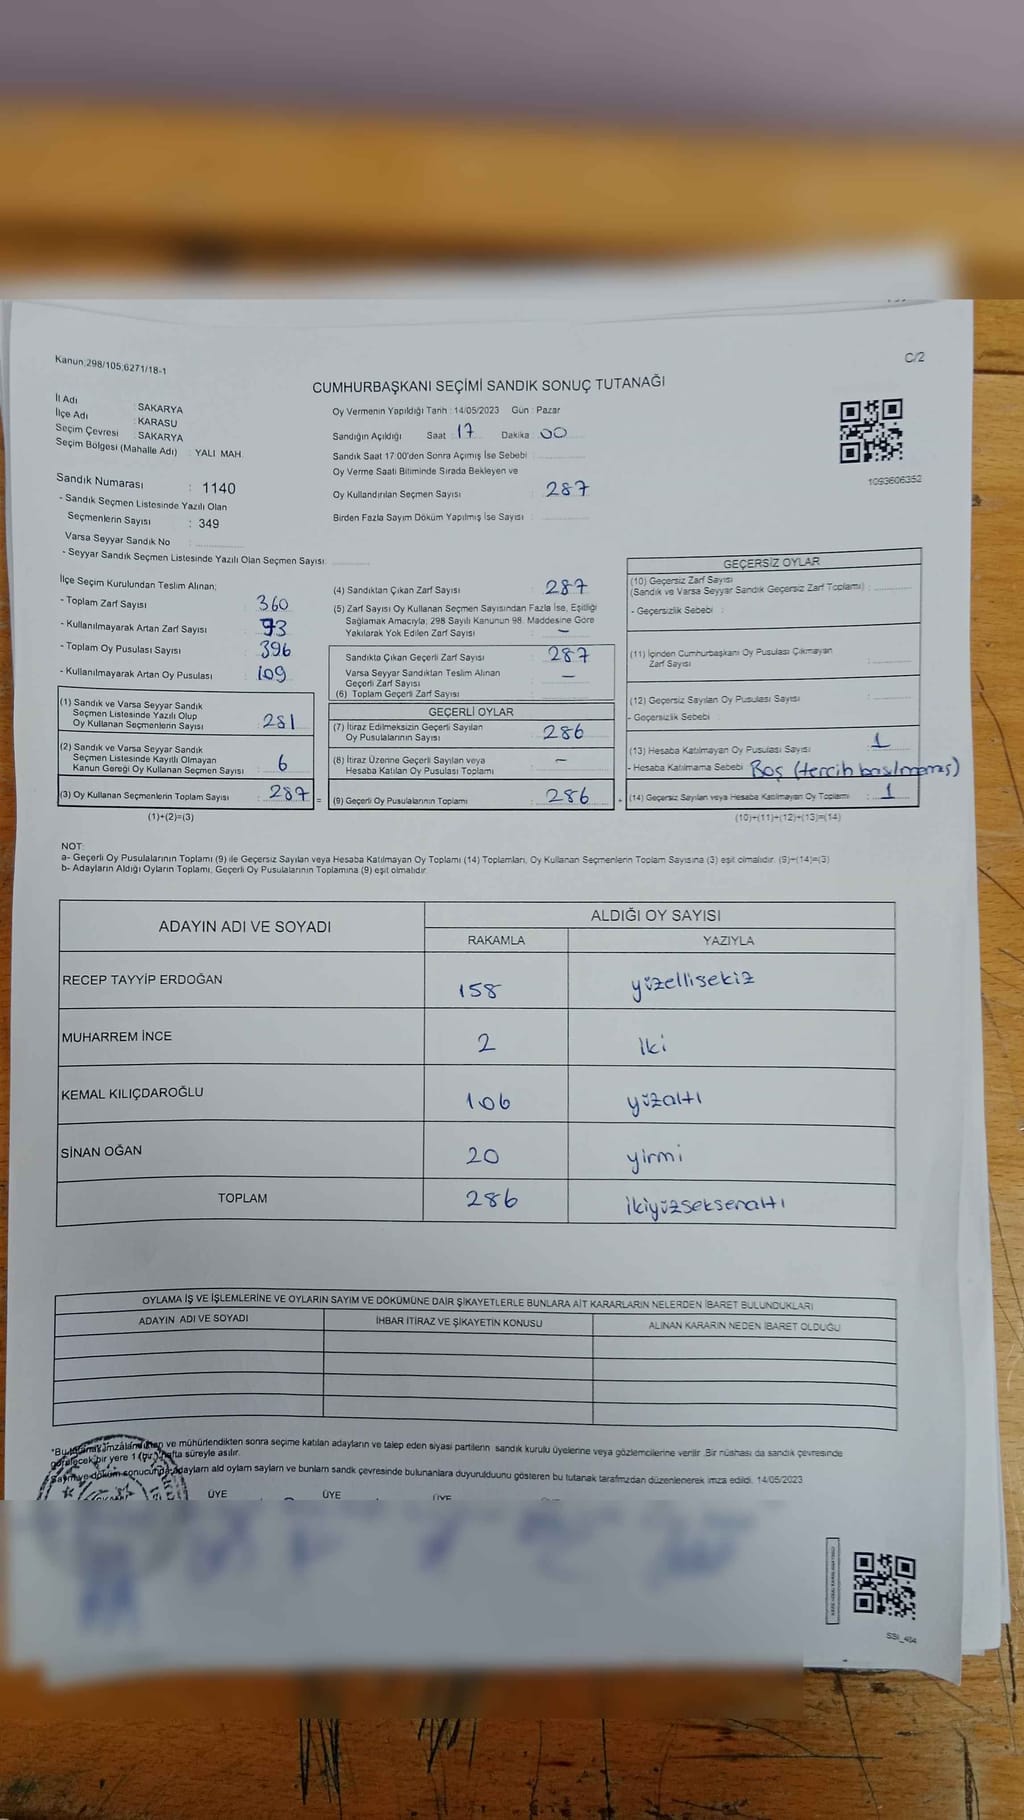 Kanun;298/105,6271/18-1
C/2
CUMHURBAŞKANI SEÇİMİ SANDIK SONUÇ TUTANAĞI
İl Adı : SAKARYA
İlçe Adı : KARASU
Seçim Çevresi : SAKARYA
Seçim Bölgesi (Mahalle Adı) : YALI MAH.
Oy Vermenin Yapıldığı Tarih : 14/05/2023 Gün : Pazar
Sandığın Açıldığı Saat : 17 Dakika : 00
Sandık Saat 17:00'den Sonra Açımış İse Sebebi :
Oy Verme Saati Bitiminde Sırada Bekleyen ve
Oy Kullandırılan Seçmen Sayısı : 287
Birden Fazla Sayım Döküm Yapılmış İse Sayısı :
1093606352
Sandık Numarası : 1140
- Sandık Seçmen Listesinde Yazılı Olan
Seçmenlerin Sayısı : 349
Varsa Seyyar Sandık No :
- Seyyar Sandık Seçmen Listesinde Yazılı Olan Seçmen Sayısı:
İlçe Seçim Kurulundan Teslim Alınan;
- Toplam Zarf Sayısı : 360
- Kullanılmayarak Artan Zarf Sayısı : 73
- Toplam Oy Pusulası Sayısı : 396
- Kullanılmayarak Artan Oy Pusulası : 109
(1) Sandık ve Varsa Seyyar Sandık
Seçmen Listesinde Yazılı Olup
Oy Kullanan Seçmenlerin Sayısı : 281
(2) Sandık ve Varsa Seyyar Sandık
Seçmen Listesinde Kayıtlı Olmayan
Kanun Gereği Oy Kullanan Seçmen Sayısı : 6
(3) Oy Kullanan Seçmenlerin Toplam Sayısı : 287 =
(1)+(2)=(3)
(4) Sandıktan Çıkan Zarf Sayısı : 287
(5) Zarf Sayısı Oy Kullanan Seçmen Sayısından Fazla İse, Eşitliği
Sağlamak Amacıyla; 298 Sayılı Kanunun 98. Maddesine Göre
Yakılarak Yok Edilen Zarf Sayısı : –
Sandıkta Çıkan Geçerli Zarf Sayısı : 287
Varsa Seyyar Sandıktan Teslim Alınan
Geçerli Zarf Sayısı : –
(6) Toplam Geçerli Zarf Sayısı :
GEÇERLİ OYLAR
(7) İtiraz Edilmeksizin Geçerli Sayılan
Oy Pusulalarının Sayısı : 286
(8) İtiraz Üzerine Geçerli Sayılan veya
Hesaba Katılan Oy Pusulası Toplamı : –
(9) Geçerli Oy Pusulalarının Toplamı : 286 +
GEÇERSİZ OYLAR
(10) Geçersiz Zarf Sayısı
(Sandık ve Varsa Seyyar Sandık Geçersiz Zarf Toplamı) :
- Geçersizlik Sebebi :
(11) İçinden Cumhurbaşkanı Oy Pusulası Çıkmayan
Zarf Sayısı :
(12) Geçersiz Sayılan Oy Pusulası Sayısı :
- Geçersizlik Sebebi :
(13) Hesaba Katılmayan Oy Pusulası Sayısı : 1
- Hesaba Katılmama Sebebi : Boş (tercih basılmamış)
(14) Geçersiz Sayılan veya Hesaba Katılmayan Oy Toplamı : 1
(10)+(11)+(12)+(13)=(14)
NOT:
a- Geçerli Oy Pusulalarının Toplamı (9) ile Geçersiz Sayılan veya Hesaba Katılmayan Oy Toplamı (14) Toplamları, Oy Kullanan Seçmenlerin Toplam Sayısına (3) eşit olmalıdır. (9)+(14)=(3)
b- Adayların Aldığı Oyların Toplamı, Geçerli Oy Pusulalarının Toplamına (9) eşit olmalıdır.
ADAYIN ADI VE SOYADI ALDIĞI OY SAYISI
RAKAMLA YAZIYLA
RECEP TAYYİP ERDOĞAN 158 yüzellisekiz
MUHARREM İNCE 2 iki
KEMAL KILIÇDAROĞLU 106 yüzaltı
SİNAN OĞAN 20 yirmi
TOPLAM 286 ikiyüzseksenaltı
OYLAMA İŞ VE İŞLEMLERİNE VE OYLARIN SAYIM VE DÖKÜMÜNE DAİR ŞİKAYETLERLE BUNLARA AİT KARARLARIN NELERDEN İBARET BULUNDUKLARI
ADAYIN ADI VE SOYADI İHBAR İTİRAZ VE ŞİKAYETİN KONUSU ALINAN KARARIN NEDEN İBARET OLDUĞU
*Bu tutanak imzalandıktan ve mühürlendikten sonra seçime katılan adayların ve talep eden siyasi partilerin sandık kurulu üyelerine veya gözlemcilerine verilir. Bir nüshası da sandık çevresinde
görülecek bir yere 1 (bir) hafta süreyle asılır.
Sayım ve döküm sonucunda adayların ald oylam saylam ve bunlam sandk çevresinde bulunanlara duyurulduunu gösteren bu tutanak tarafmzdan düzenlenerek imza edildi. 14/05/2023
ÜYE ÜYE ÜYE
SSI_404